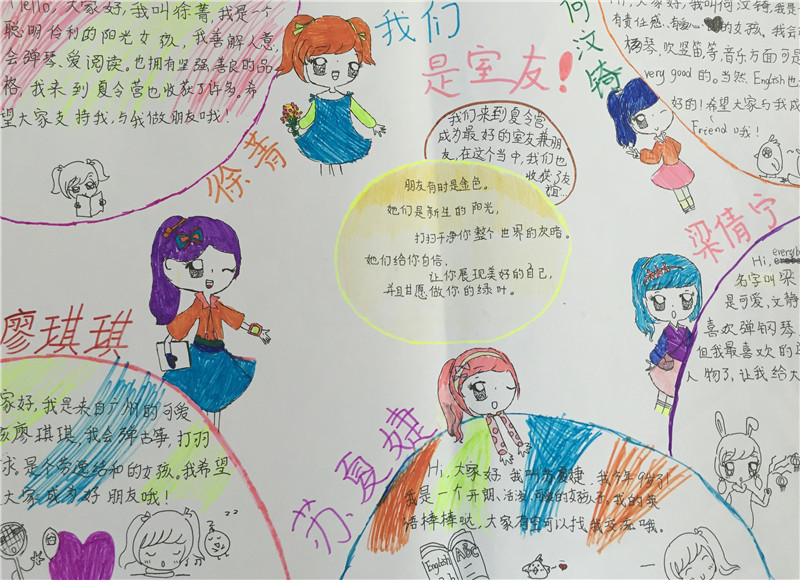 Hello, 大家好, 我叫徐菁, 我是一个
聪明伶利的阳光女孩, 我善解人意,
会弹琴、爱阅读, 也拥有坚强、善良的品
格, 我来到夏令营也收获了许多。希
望大家支持我, 与我做朋友哦!
徐菁
我们
是室友!
何汶锜
大家好, 我叫何汶锜, 我是
有责任感、有
的女孩, 我会
杨琴, 吹竖笛等, 音乐方面可是
very good 的。当然, English也
好的! 希望大家与我成
Friend 哦!
我们来到夏令营,
成为最好的室友兼朋
友, 在这个当中, 我们也
收获了友
谊...
朋友有时是金色。
她们是新生的阳光,
打扫干净你整个世界的灰暗。
她们给你自信,
让你展现美好的自己,
并且甘愿做你的绿叶。
梁倩宁
Hi,
名字叫梁
是可爱, 文静
喜欢弹钢琴
但我最喜欢的
人物了, 让我给大
廖琪琪
家好, 我是来自广州的可爱
孩廖琪琪, 我会弹古筝, 打羽
球, 是个带遗结和的女孩。我希望
大家成为好朋友哦!
苏夏婕
Hi, 大家好, 我叫苏夏婕, 我今年9岁了!
我是一个开朗、活泼、可爱的女孩子, 我的英
语棒棒哒, 大家有空可以找我交流哦。
English
ABC